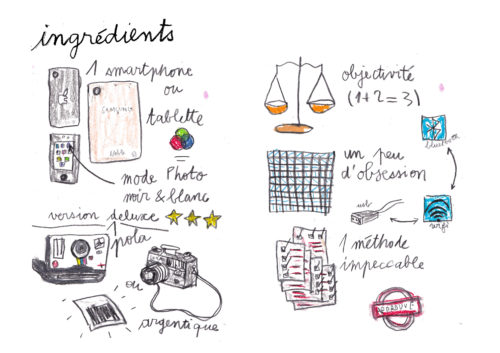 ingrédients
1 smartphone
ou
tablette
mode Photo
noir & blanc
version deluxe
pola
ou
argentique
objectivité
(1+2=3)
bluetooth
un peu
d'obsession
usb
wifi
1 méthode
impeccable